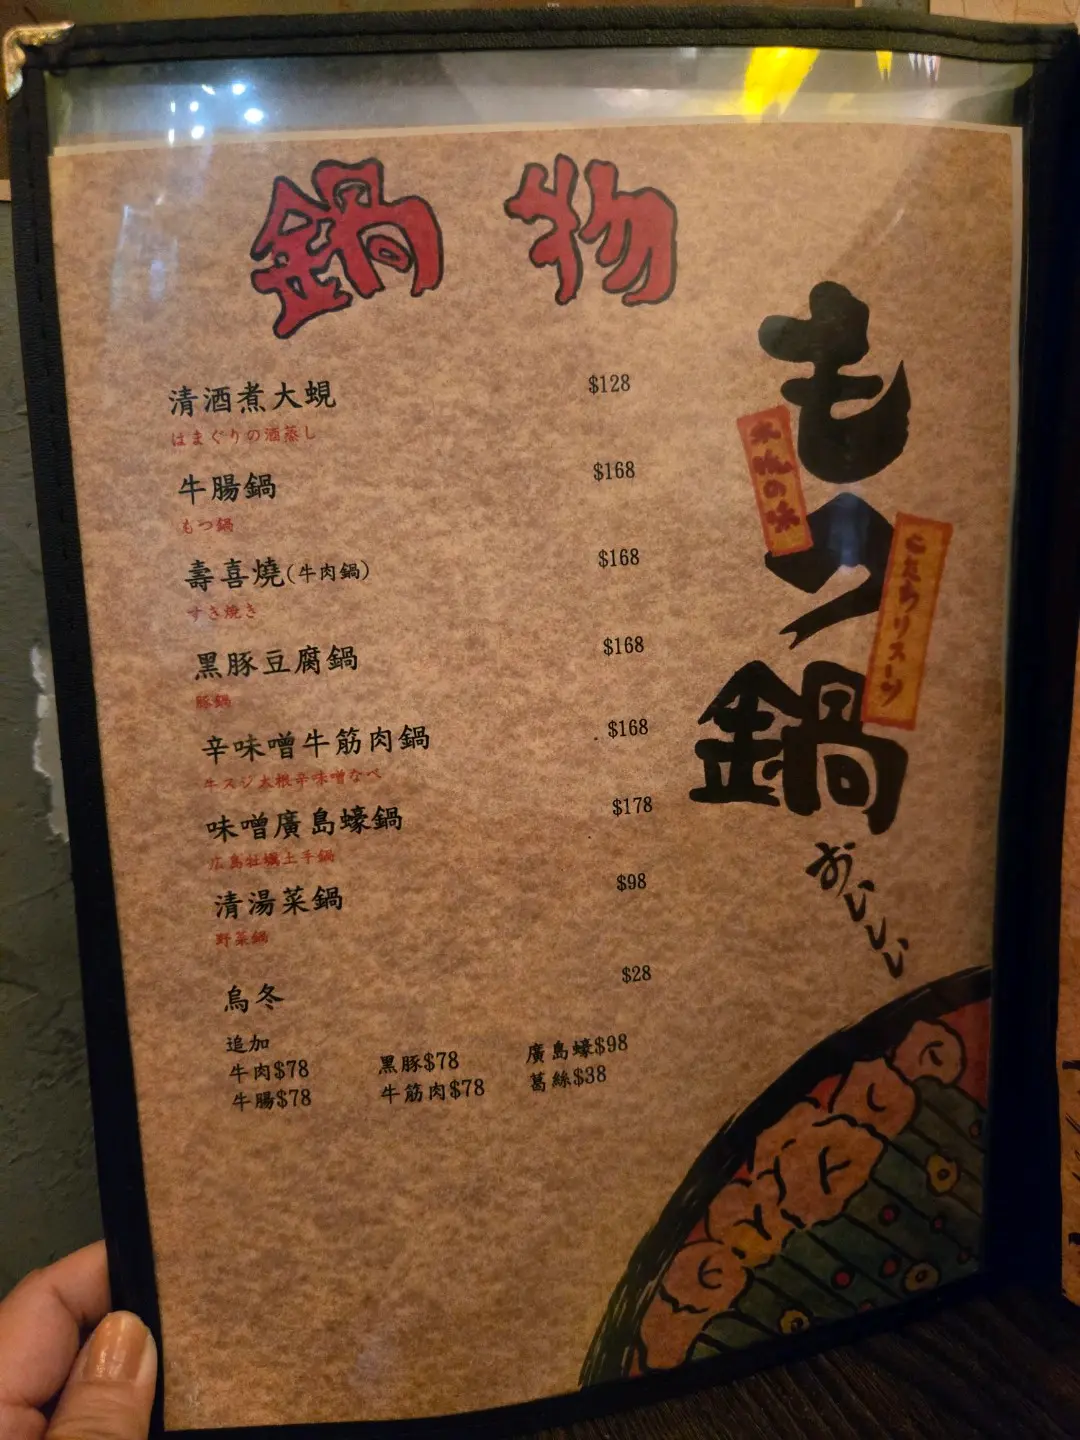 鍋物
清酒煮大蜆 $128
はまぐりの酒蒸し
牛腸鍋 $168
もつ鍋
壽喜燒(牛肉鍋) $168
すき焼き
黑豚豆腐鍋 $168
豚鍋
辛味噌牛筋肉鍋 $168
牛スジ大根辛味噌なべ
味噌廣島蠔鍋 $178
広島牡蠣土手鍋
清湯菜鍋 $98
野菜鍋
烏冬 $28
追加
牛肉$78 黑豚$78 廣島蠔$98
牛腸$78 牛筋肉$78 葛絲$38
もつ鍋
の味
こだわりスープ
おいしい